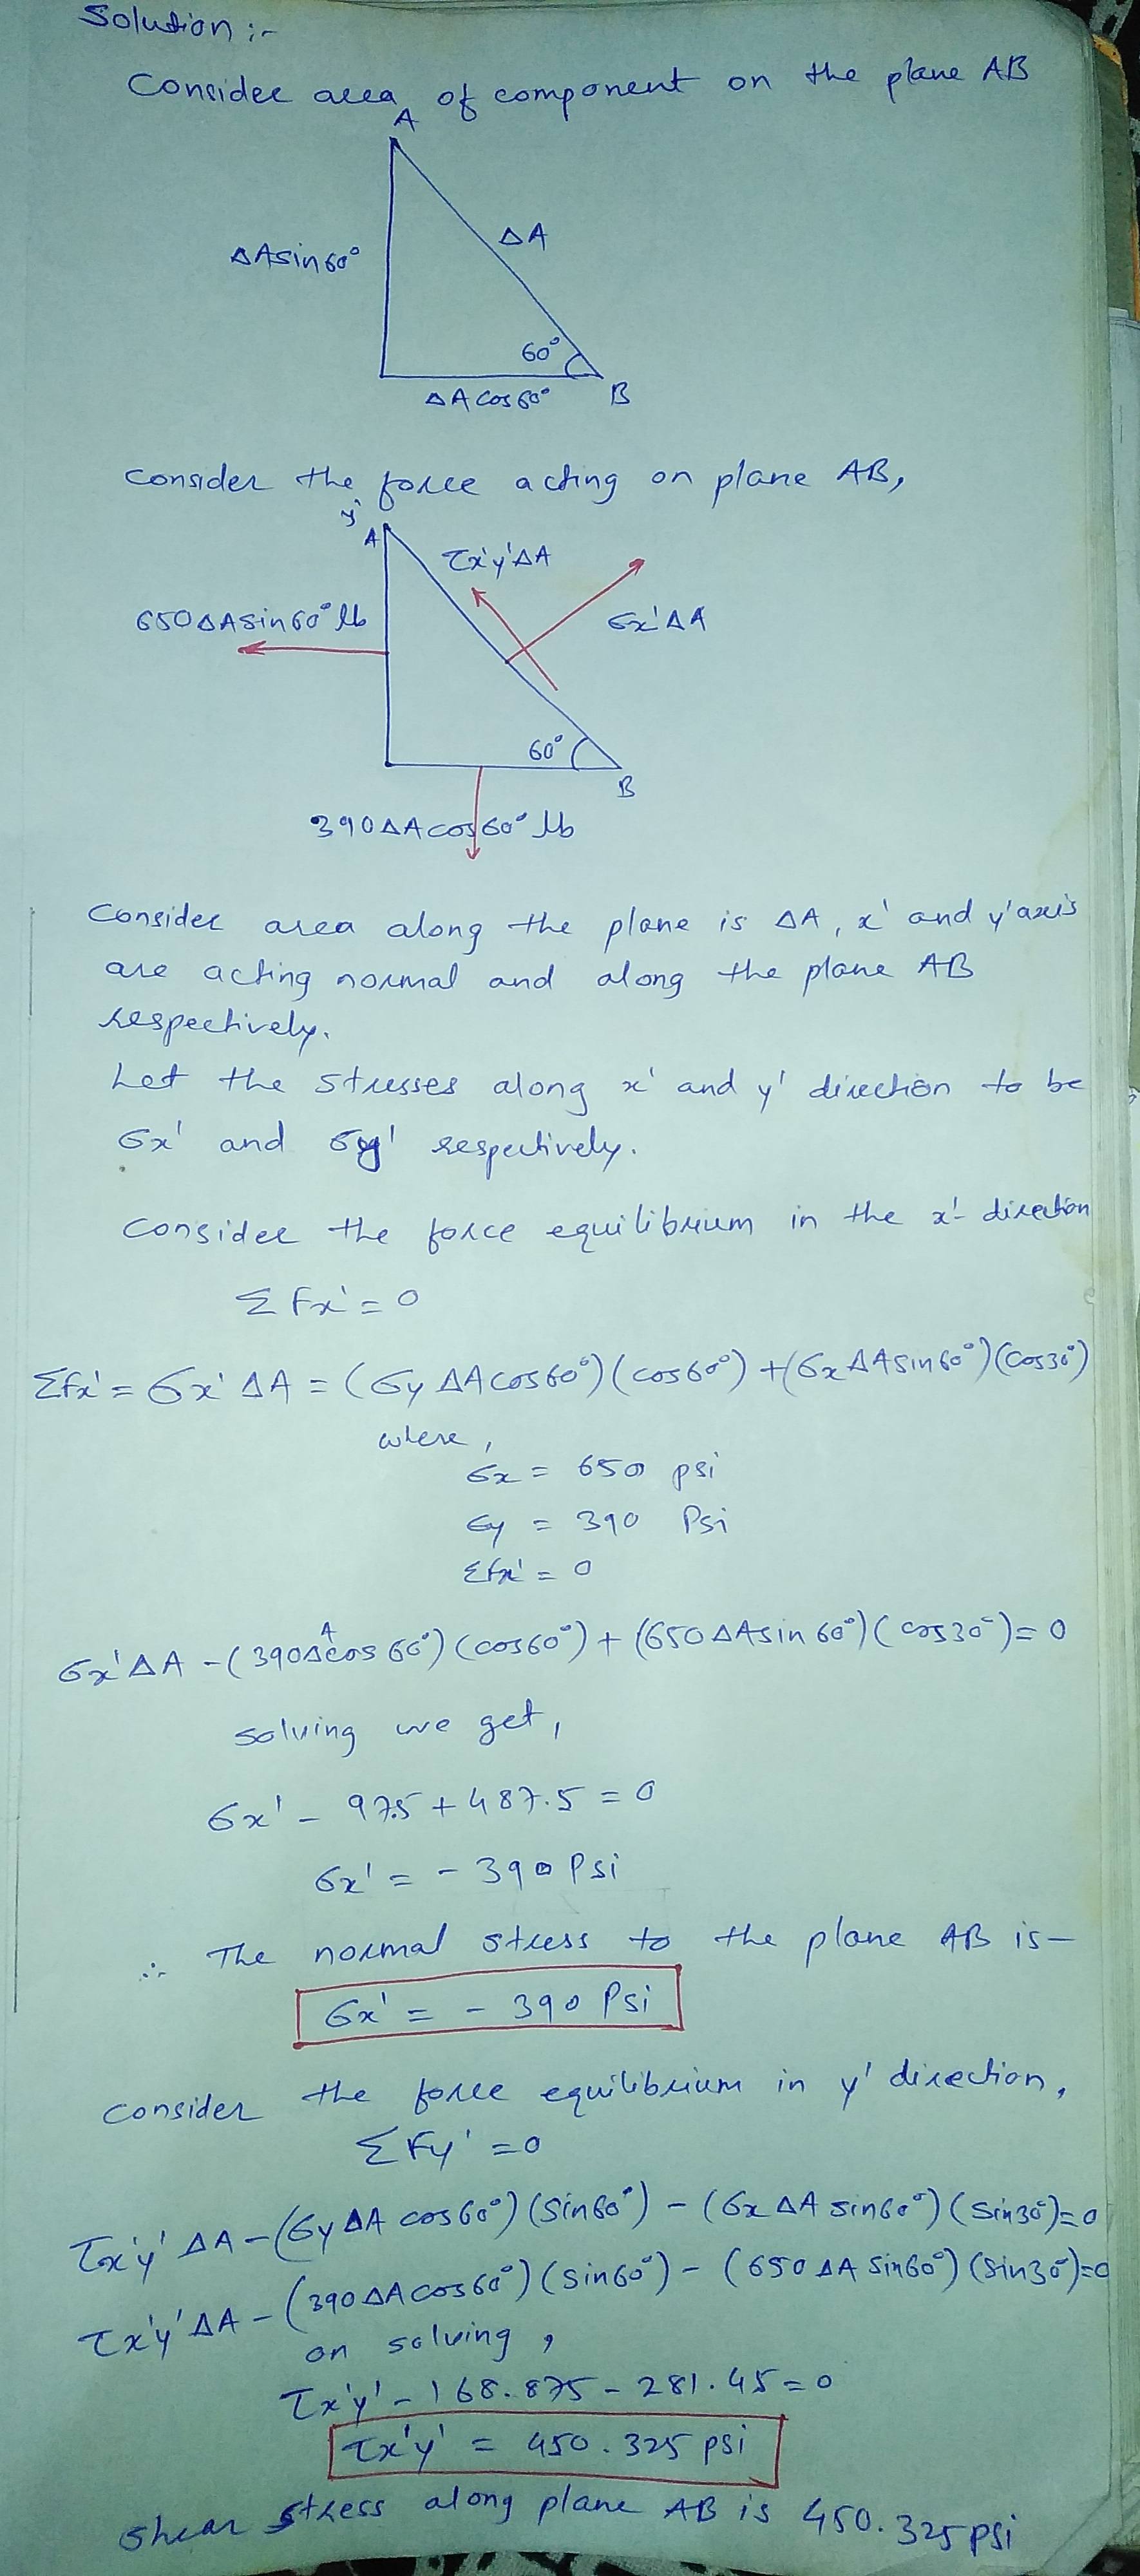 Solution :-
Consider area of component on the plane AB
A
ΔA
ΔAsin60°
60°
ΔAcos60°
B
Consider the force acting on plane AB,
y'
A
τx'y'ΔA
650ΔAsin60° lb
σx'ΔA
60°
B
390ΔAcos60° lb
Consider area along the plane is ΔA, x' and y' axis
are acting normal and along the plane AB
respectively.
Let the stresses along x' and y' direction to be
σx' and σy' respectively.
Consider the force equilibrium in the x'- direction
ΣFx' = 0
ΣFx' = σx' ΔA = (σy ΔAcos60°)(cos60°) + (σx ΔAsin60°)(cos30°)
where,
σx = 650 psi
σy = 390 Psi
Σfx' = 0
σx'ΔA - (390ΔAcos60°)(cos60°) + (650ΔAsin60°)(cos30°) = 0
solving we get,
σx' - 97.5 + 487.5 = 0
σx' = - 390 Psi
∴ The normal stress to the plane AB is-
σx' = - 390 Psi
Consider the force equilibrium in y' direction,
ΣFy' = 0
τx'y' ΔA - (σy ΔA cos60°)(sin60°) - (σx ΔA sin60°)(sin30°) = 0
τx'y' ΔA - (390ΔAcos60°)(sin60°) - (650ΔA sin60°)(sin30°) = 0
on solving,
τx'y' - 168.875 - 281.45 = 0
τx'y' = 450.325 psi
Shear stress along plane AB is 450.325 psi